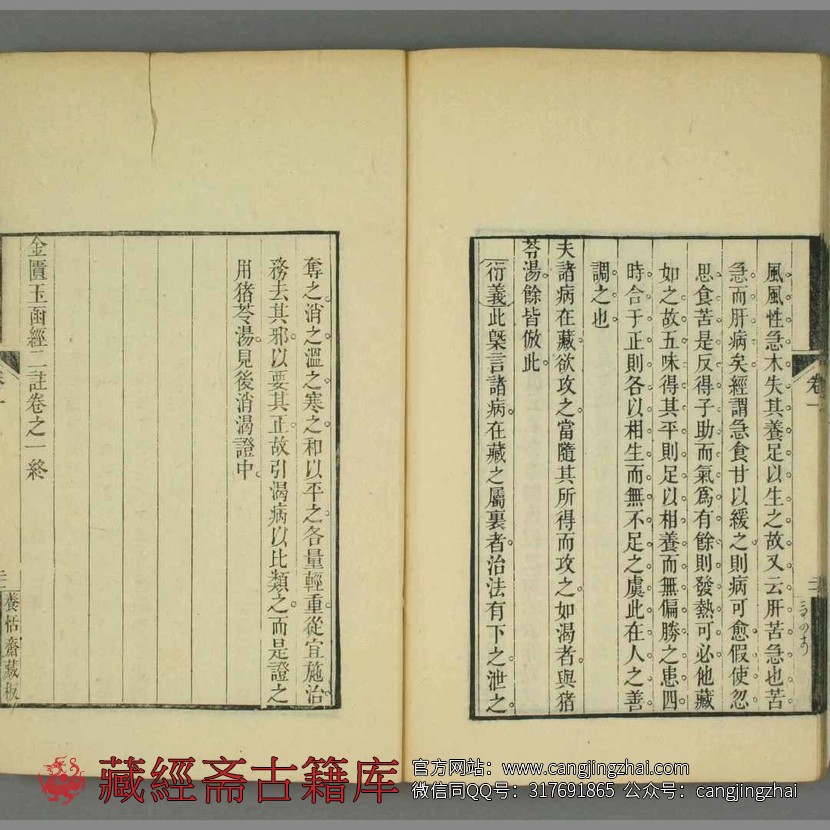 風風性急木失其養足以生之故又云肝苦急也苦
急而肝病矣經謂急食甘以緩之則病可愈假使忽
思食苦是反得子助而氣爲有餘則發熱可必他藏
如之故五味得其平則足以相養而無偏勝之患四
時合于正則各以相生而無不足之虞此在人之善
調之也
夫諸病在藏欲攻之當隨其所得而攻之如渴者與猪
苓湯餘皆倣此
衍義此槩言諸病在藏之屬裏者治法有下之泄之
卷一
奪之消之溫之寒之和以平之各量輕重從宜施治
務去其邪以要其正故引渴病以比類之而是證之
用猪苓湯見後消渴證中
金匱玉函經二註卷之一終
養恬齋藏板
藏經斋古籍库
官方网站：www.cangjingzhai.com
微信同QQ号：317691865 公众号：cangjingzhai